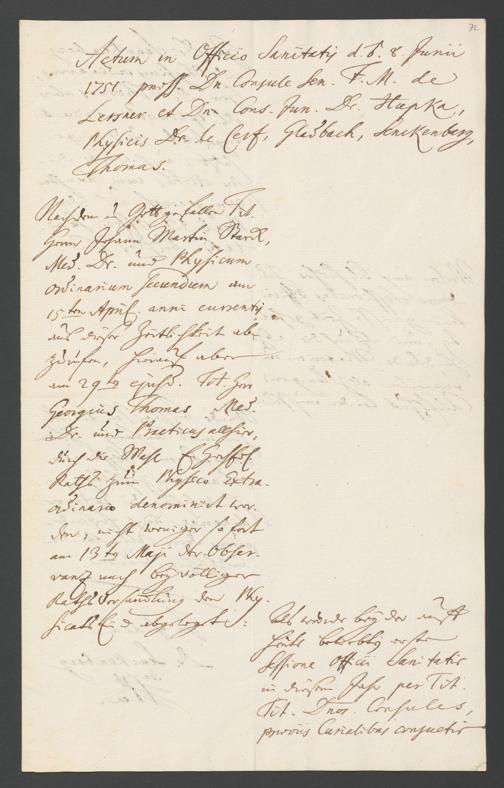 72
Actum in Officio Sanitatis d. 8. Junii
1751 praess. Dn. Consule Sen. F. M. de
Lersner et Dn. Cons. Jun. Dr. Hupka,
Physicis Dr. le Cerf, Gladbach, Senckenberg,
Thomas.
Nachdem es Gott gefallen Tit.
Herrn Johann Martin Starck,
Med. Dr. und Physicum
ordinarium secundum am
15ten April. anni currentis
aus dieser Zeitlichkeit ab-
zurufen, hierauf aber
am 29 ejusd. Tit. Herr
Georgius Thomas Med.
Dr. und Practicus allhier,
durch die Wahl
Raths zum Physico Extra-
ordinario denominirt wor-
den, nicht weniger sofort
am 13ten Maji der Obser-
vanz nach bey völliger
Raths Versammlung den Phy-
sicats Eid abgeleget:
als wurde bey der auff
heute ersten
Sessione Officii Sanitatis
in diesem Jahr per Tit.
Tit. Dnos. Consules,
praeviis Curialibus consuetis